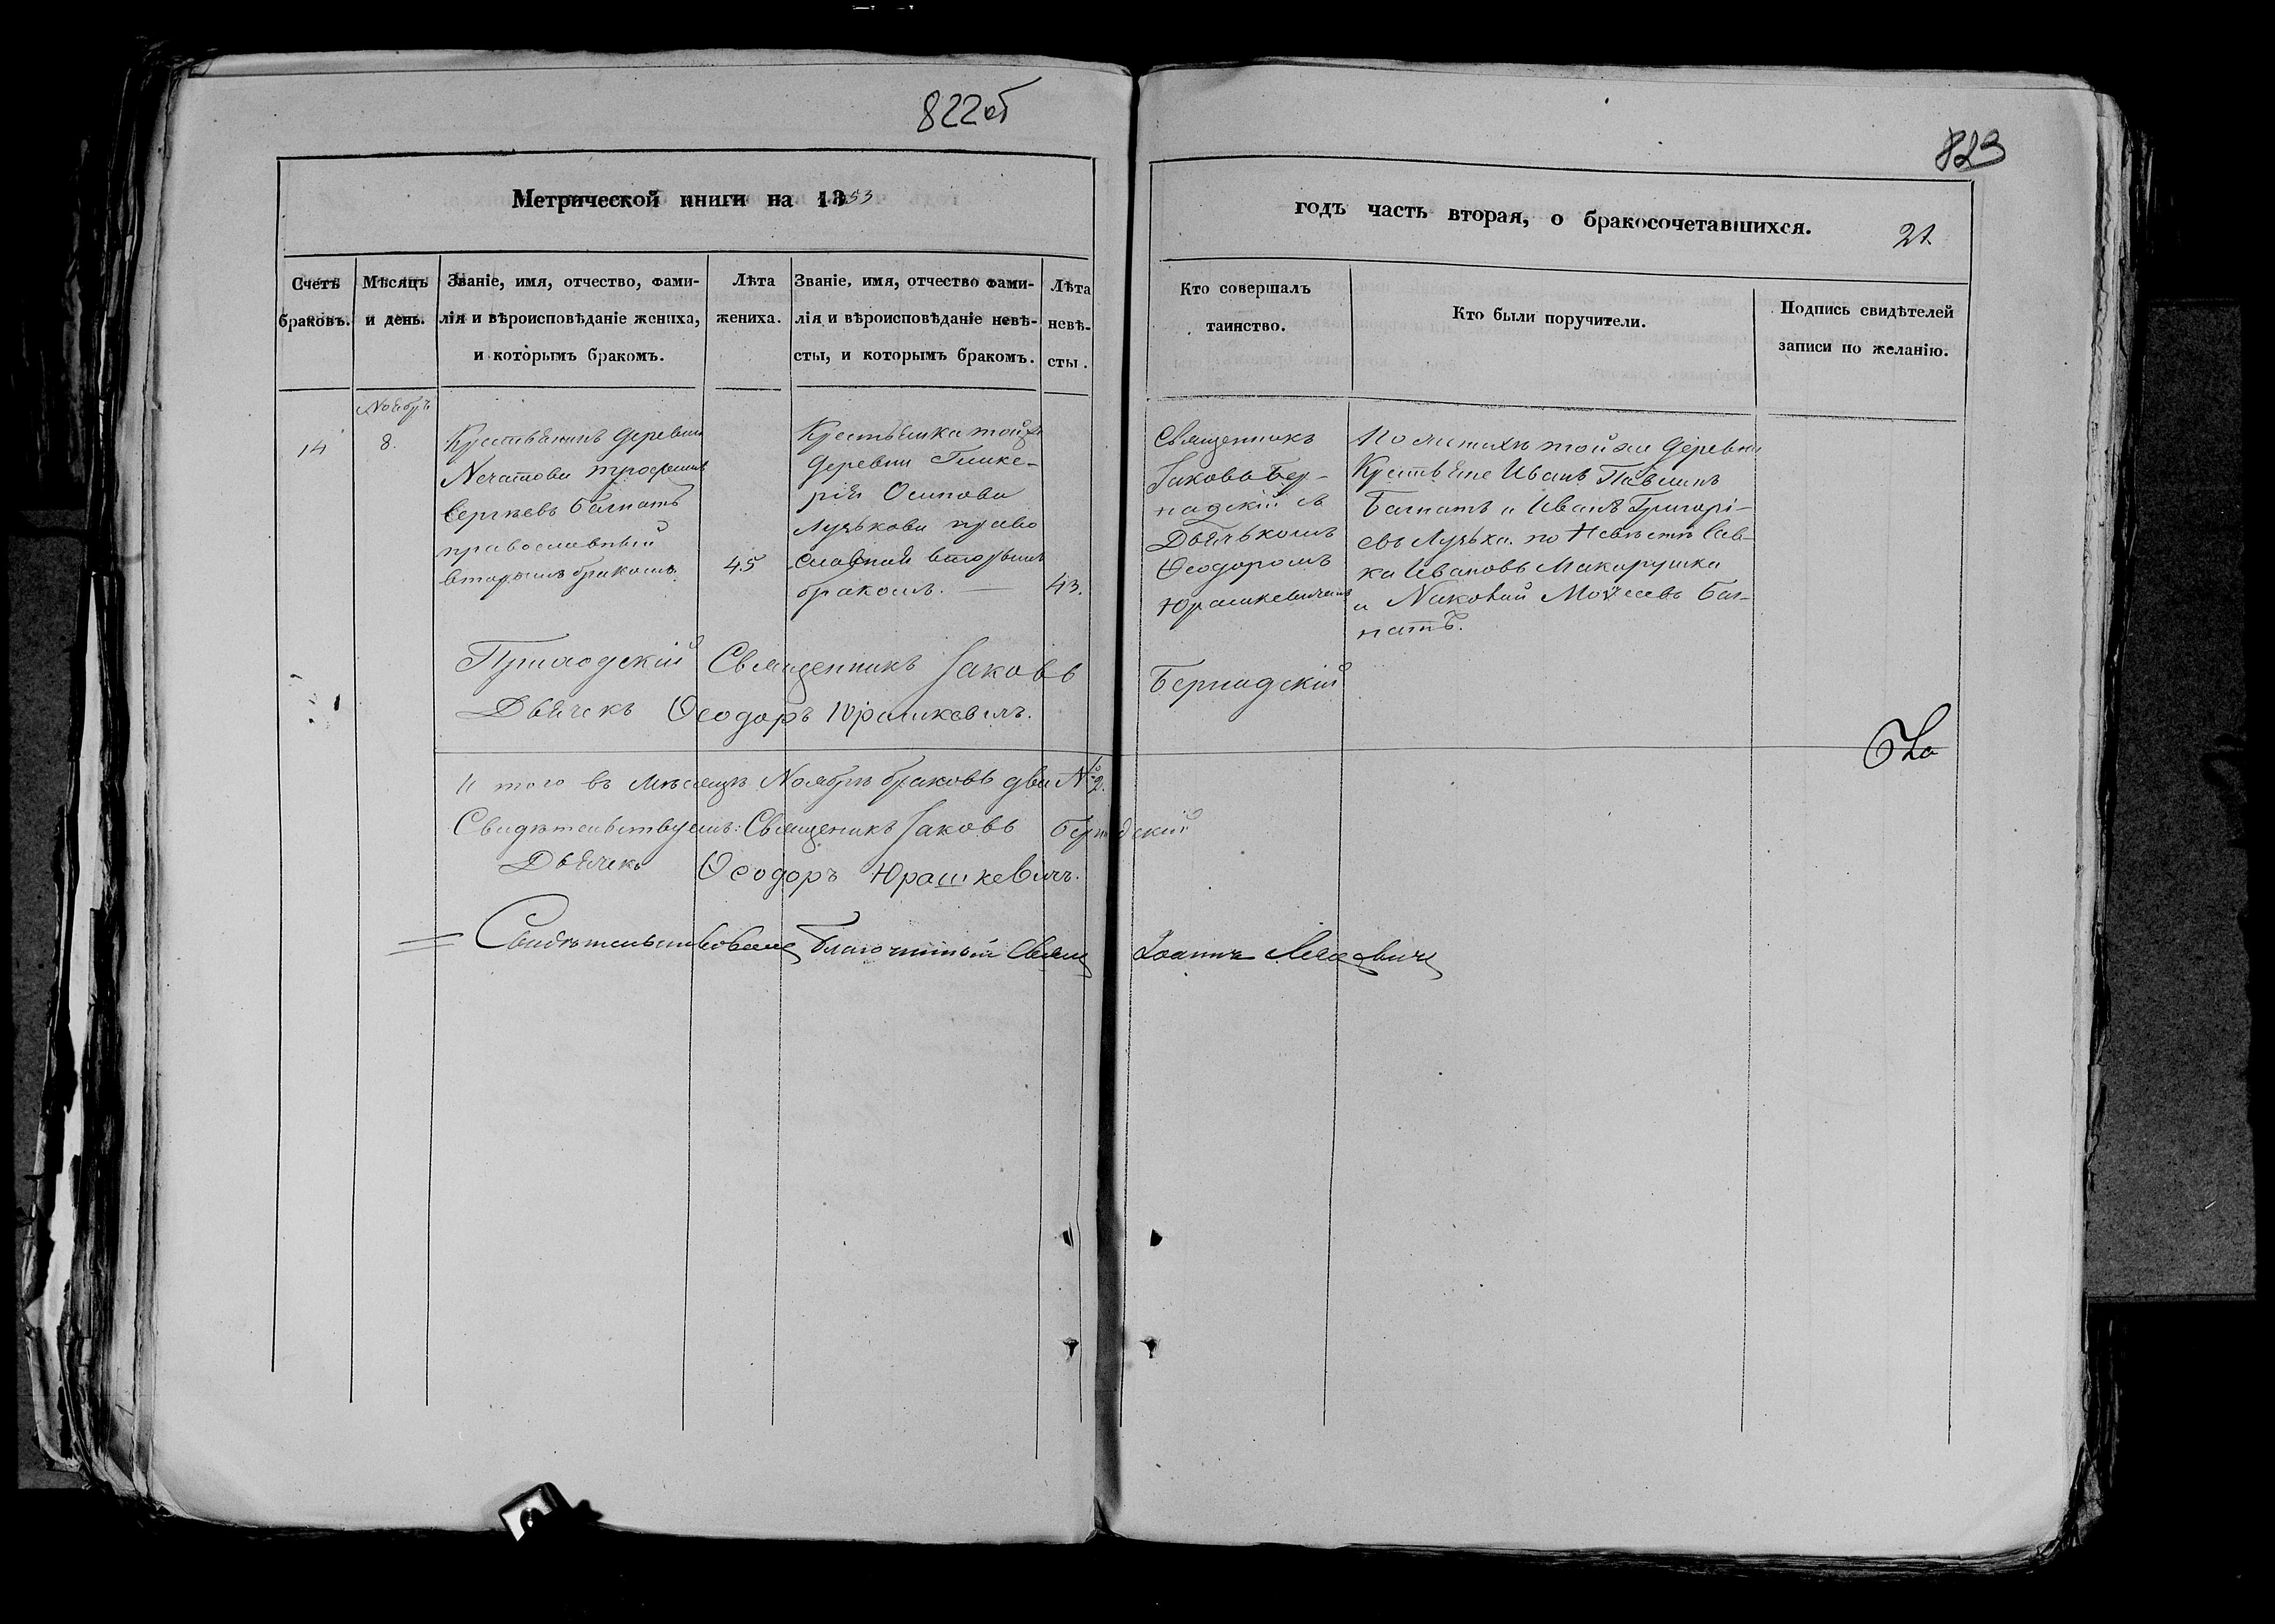 822об
823
Метрической книги на 1853
годъ часть вторая, о бракосочетавшихся.
21.
Счетъ браковъ.
Мѣсяцъ и день.
Званіе, имя, отчество, фами-
лія и вѣроисповѣданіе жениха,
и которымъ бракомъ.
Лѣта
жениха.
Званіе, имя, отчество фами-
лія и вѣроисповѣданіе невѣ-
сты, и которымъ бракомъ.
Лѣта
невѣ-
сты.
Кто совершалъ
таинство.
Кто были поручители.
Подпись свидѣтелей
записи по желанію.
Ноябрь
14
8.
Крестьянинъ деревни
Нечатова Трофимъ
Сергѣевъ Багнатъ
православный
вторымъ бракомъ.
45
Крестьянка той же
деревни Глике-
рія Осипова
Лузькова право
славной вторымъ
бракомъ. —
43.
Священникъ
Іаковъ Бер-
надскій съ
Дьячькомъ
Ѳеодоромъ
Юрашкевичемъ
По женихѣ той же деревни
Крестьяне Иванъ Павлинъ
Багнатъ и Иванъ Григорі-
евъ Лузька. по Невѣстѣ Сав-
ка Ивановъ Макарушка
и Моѵсеевъ Баг-
натъ.
Приходскій Священникъ Іаковъ Бернадскій
Дьячекъ Ѳеодоръ Юрашкевичъ.
И того въ мѣсяцѣ Ноябрѣ браковъ два № 2.
Свидѣтельствуемъ: Священикъ Іаковъ Бернадскій
Дьячекъ Ѳеодоръ Юрашкевичъ.
Свидѣтельствовалъ Благочинный Свящ Іоаннъ